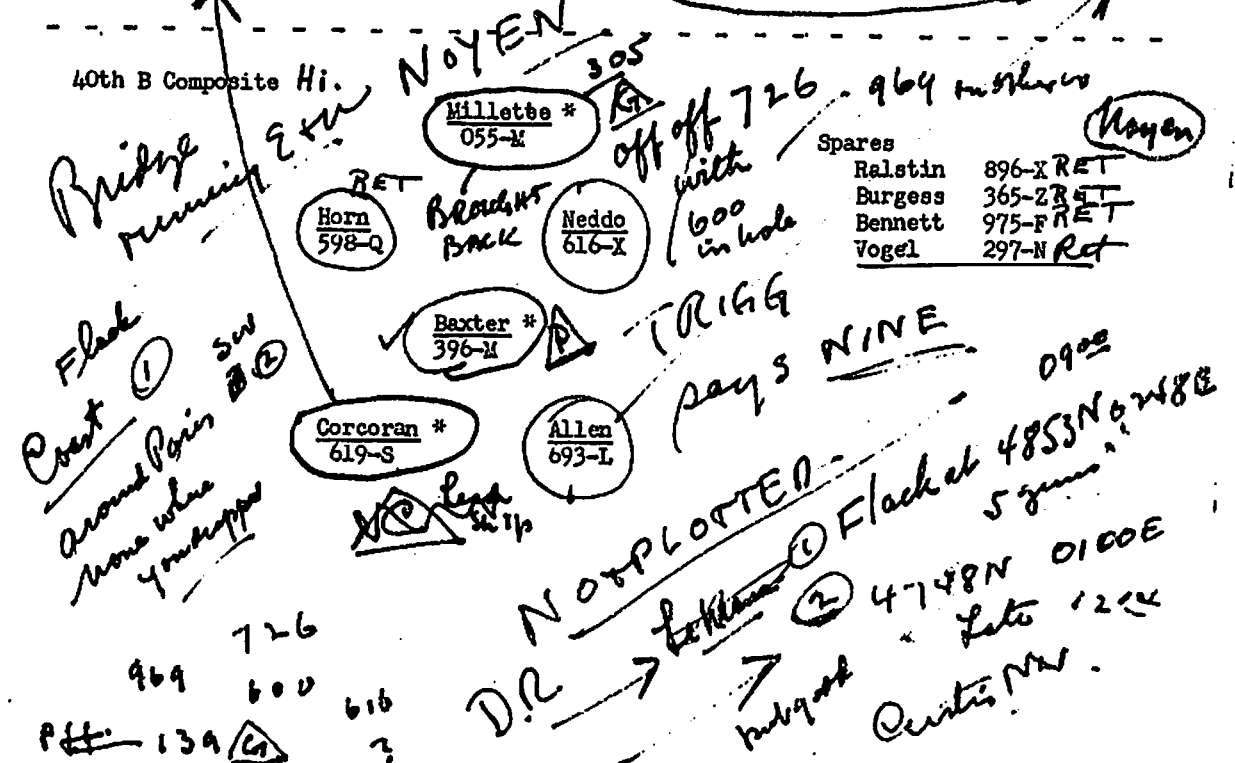 NOYEN
305
40th B Composite Hi.
Millette *
055-M
G
off off 726
969
Noyen
Bridge
running
Spares
Ralstin 896-X RET
Burgess 365-Z RET
Bennett 975-F RET
Vogel 297-N Ret
RET
Horn
598-Q
BROUGHT
BACK
Neddo
616-X
with
600
in hole
Baxter *
396-M
P
TRIGG
says NINE
Flack
Coast 1
SW
2
around Paris
none where
you dropped
Corcoran *
619-S
Allen
693-L
Lead
Ships
NOT PLOTTED
0900
1 Flack at 4853N 0248E
5 guns
2 4748N 0100E
D.R
Late
Curtis NN.
726
969 600 616
Pff. 139 G ?